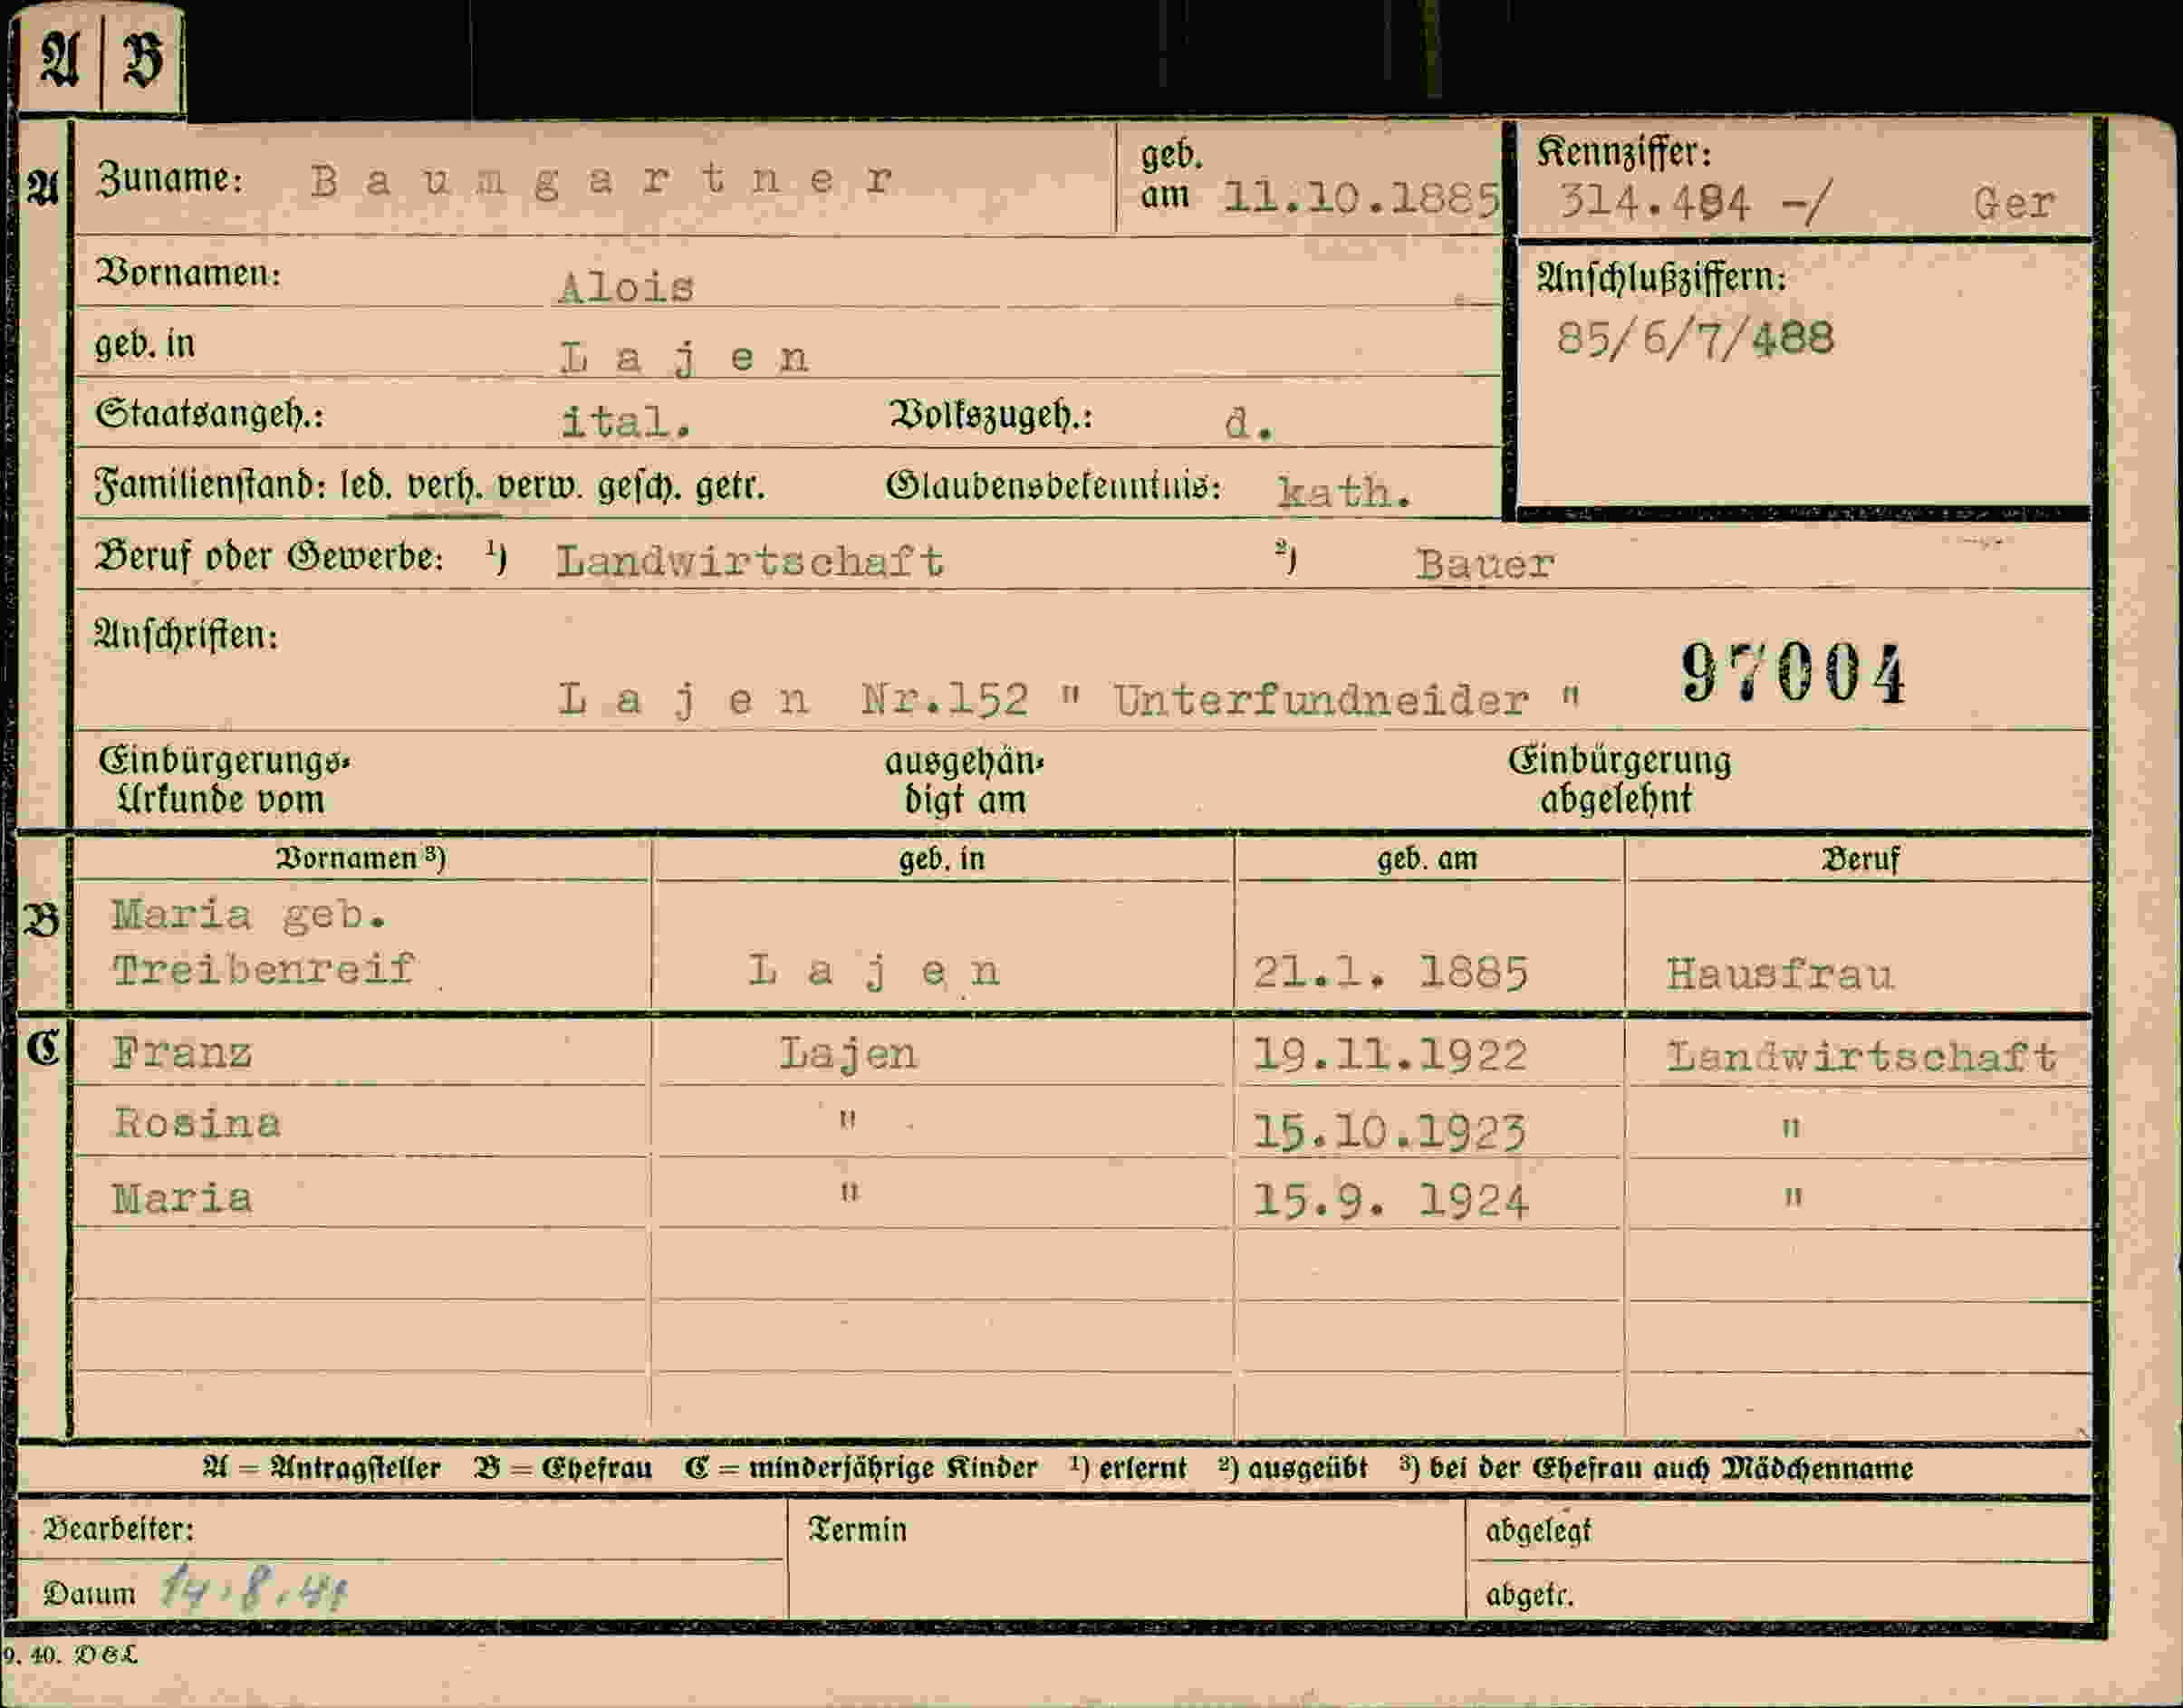 A B
A Zuname: Baumgartner geb. am 11.10.1885 Kennziffer: 314.484 -/ Ger
Vornamen: Alois Anschlußziffern:
geb. in Lajen 85/6/7/488
Staatsangeh.: ital. Volkszugeh.: d.
Familienstand: led. verh. verw. gesch. getr. Glaubensbekenntnis: kath.
Beruf oder Gewerbe: ¹) Landwirtschaft ²) Bauer
Anschriften:
Lajen Nr.152 " Unterfundneider " 97004
Einbürgerungs- ausgehän- Einbürgerung
Urkunde vom digt am abgelehnt
Vornamen ³) geb. in geb. am Beruf
B Maria geb.
Treibenreif Lajen 21.1. 1885 Hausfrau
C Franz Lajen 19.11.1922 Landwirtschaft
Rosina " 15.10.1923 "
Maria " 15.9. 1924 "
A = Antragsteller B = Ehefrau C = minderjährige Kinder ¹) erlernt ²) ausgeübt ³) bei der Ehefrau auch Mädchenname
Bearbeiter: Termin abgelegt
Datum 14.8.41 abgetr.
9. 40. D&L